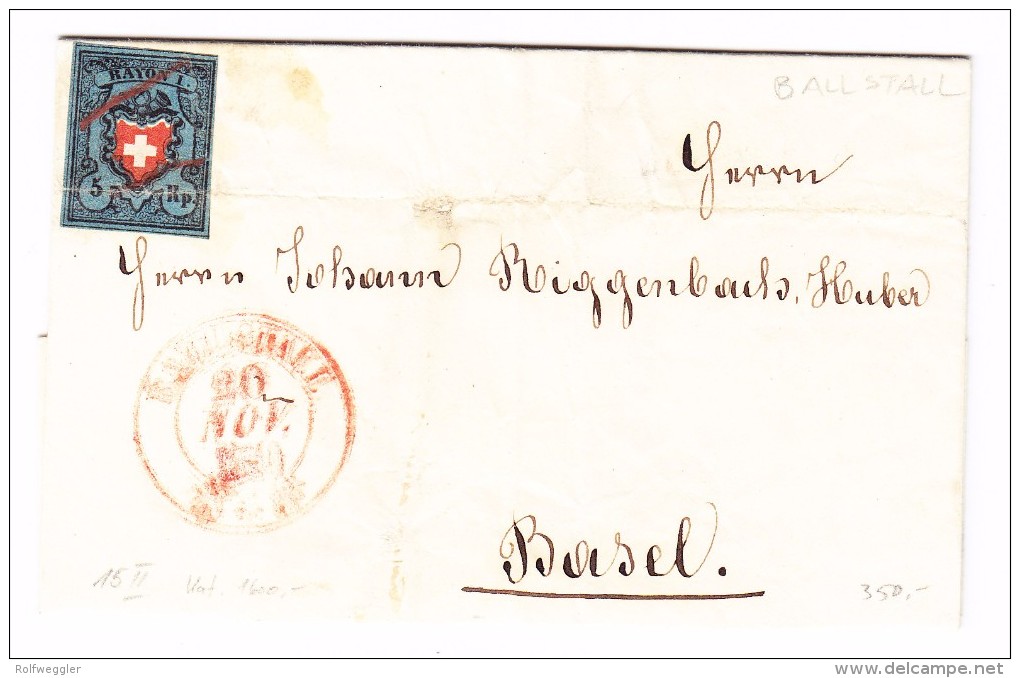 RAYON I.
5 Rp.
BALLSTALL
Herrn
Herrn Johann Riggenbach, Huber
20
NOV.
1850
Basel.
15 II
Kat. 1600.-
350.-
Rolfweggler
www.delcampe.net